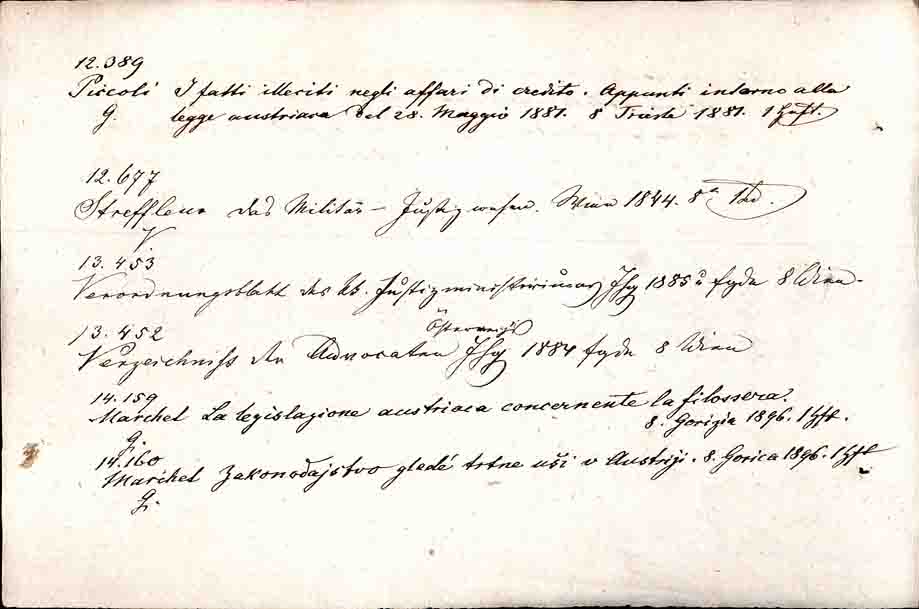 12.389
Piccoli I fatti illeciti negli affari di credito. Appunti intorno alla
G. legge austriaca del 28. Maggio 1881. 8 Trieste 1881. 1 Hft.
12.677
Streffleur das Militär-Justizwesen. Wien 1844. 8° 1 Bd.
V.
13.453
Verordnungsblatt des k.k. Justizministeriums Jhg 1885 u fgde 8 Wien.
13.452
Österreichs
Verzeichniss der Advocaten Jhg 1884 fgde 8 Wien
14.159
Marchel La legislazione austriaca concernente la filossera.
8. Gorizia 1896. 1 Hft.
G.
14.160
Marchel Zakonodajstvo gledé trtne uši v Austriji. 8. Gorica 1896. 1 Hft
G.